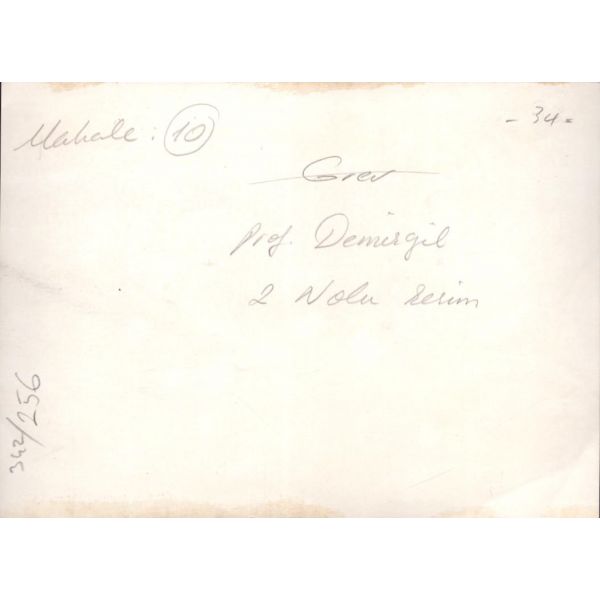 Mahale : 10
- 34 -
Grev
Prof. Demirgil
2 Nolu resim
342/256